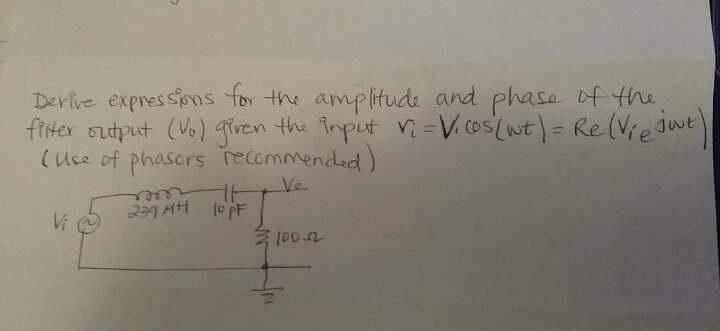 Derive expressions for the amplitude and phase of the
filter output (Vo) given the input vi = Vi cos(wt) = Re(Vi e jwt)
(Use of phasors recommended)
Vo
239 μH 10 pF
Vi
100 Ω